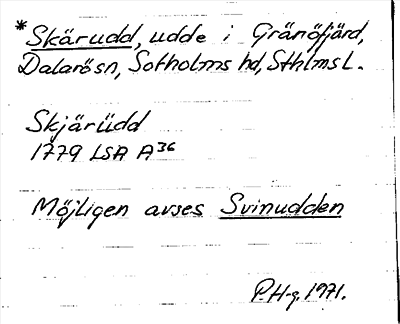 *Skärudd, udde i Gränöfjärd,
Dalarösn, Sotholms hd, Sthlms L.
Skjärüdd
1779 LSA A36
Möjligen avses Svinudden
P.H-g. 1971.